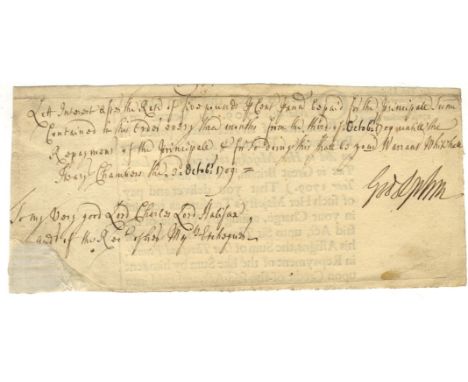 Lett Interest after the Rate of five pounds p Cent p ann be paid for the Principale Summ
Contained in this Order every three months from the third of Octobr 1709 untill the
Repayment of the Principale & for so doing this shall be your Warrant Whitehall
Treary Chambers the 3d Octobr 1709 =
Godolphin
To my very good Lord Charles Lord Halifax
Audr of the Rec of her Majts Exchequer